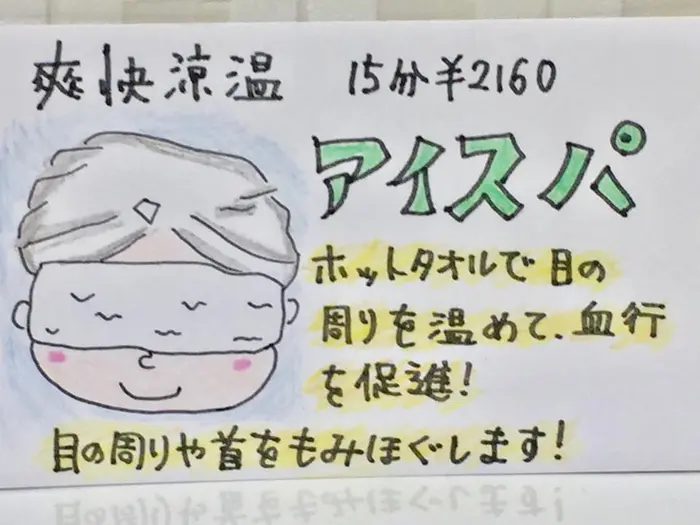 爽快涼温 15分¥2160
アイスパ
ホットタオルで目の
周りを温めて、血行
を促進!
目の周りや首をもみほぐします!